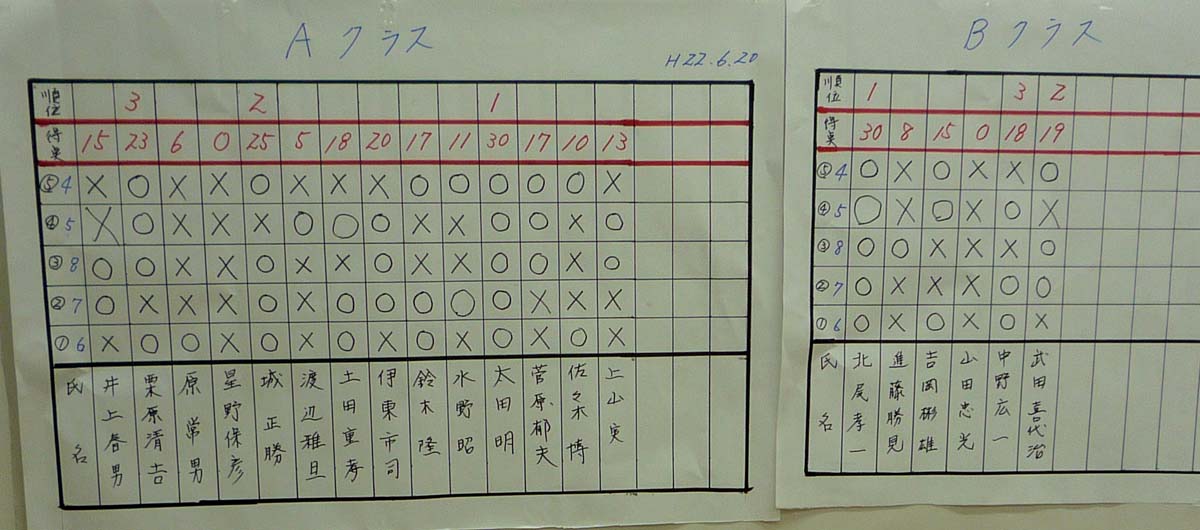 Aクラス
H22.6.20
順位 3 2 1
得点 15 23 6 0 25 5 18 20 17 11 30 17 10 13
⑤ 4 × ○ × × ○ × × × ○ ○ ○ ○ ○ ×
④ 5 × ○ × × × ○ ○ ○ × × ○ ○ × ○
③ 8 ○ ○ × × ○ × × ○ × × ○ ○ × ○
② 7 ○ × × × ○ × ○ ○ ○ ○ ○ × × ×
① 6 × ○ ○ × ○ × ○ × ○ × ○ × ○ ×
氏名
井上春男
栗原清吉
原常男
星野保彦
城正勝
渡辺雅旦
土田重孝
伊東市司
鈴木隆
水野昭
太田明
菅原郁夫
佐々木博
上山実
Bクラス
順位 1 3 2
得点 30 8 15 0 18 19
⑤ 4 ○ × ○ × × ○
④ 5 ○ × ○ × ○ ×
③ 8 ○ ○ × × × ○
② 7 ○ × × × ○ ○
① 6 ○ × ○ × ○ ×
氏名
北尾孝一
進藤勝見
吉岡彬雄
山田忠光
中野広一
武田喜代治